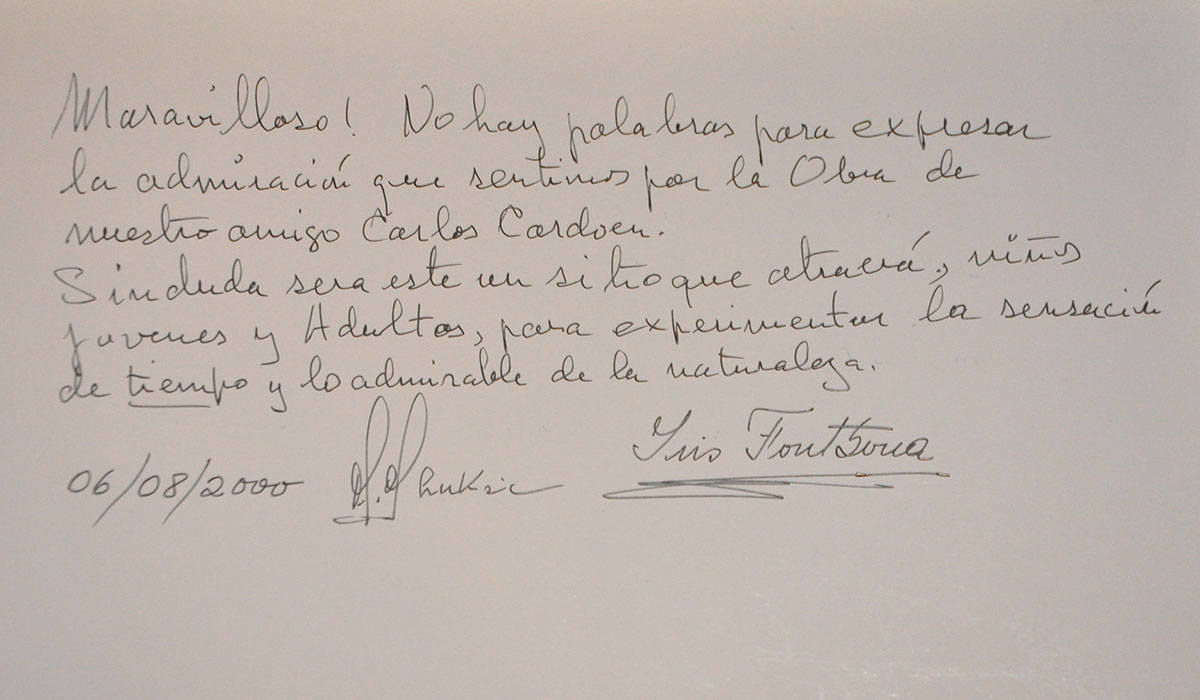 Maravilloso! No hay palabras para expresar
la admiración que sentimos por la Obra de
nuestro amigo Carlos Cardoen.
Sin duda sera este un sitio que atraerá, niños
jovenes y Adultos, para experimentar la sensación
de tiempo y lo admirable de la naturaleza.
06/08/2000